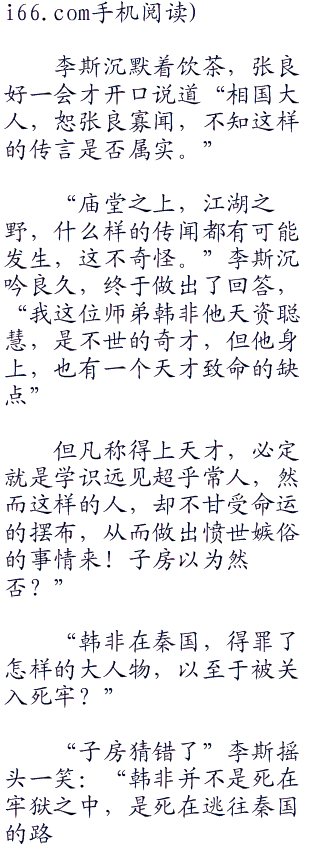 i66.com手机阅读)
李斯沉默着饮茶，张良
好一会才开口说道“相国大
人，恕张良寡闻，不知这样
的传言是否属实。”
“庙堂之上，江湖之
野，什么样的传闻都有可能
发生，这不奇怪。”李斯沉
吟良久，终于做出了回答，
“我这位师弟韩非他天资聪
慧，是不世的奇才，但他身
上，也有一个天才致命的缺
点”
但凡称得上天才，必定
就是学识远见超乎常人，然
而这样的人，却不甘受命运
的摆布，从而做出愤世嫉俗
的事情来！子房以为然
否？”
“韩非在秦国，得罪了
怎样的大人物，以至于被关
入死牢？”
“子房猜错了”李斯摇
头一笑：“韩非并不是死在
牢狱之中，是死在逃往秦国
的路